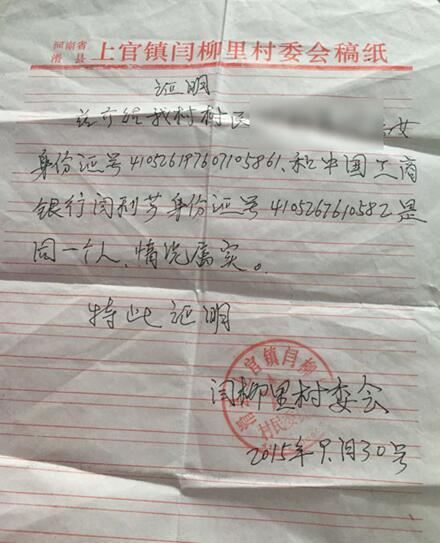 河南省
滑县
上官镇闫柳里村委会稿纸
证明
兹介绍我村村民 女
身份证号410526197607105861、和中国工商
银行闫利芳身份证号4105267610582是
同一个人、情况属实。
特此证明
闫柳里村委会
2015年9月30号
官镇闫柳
村民委